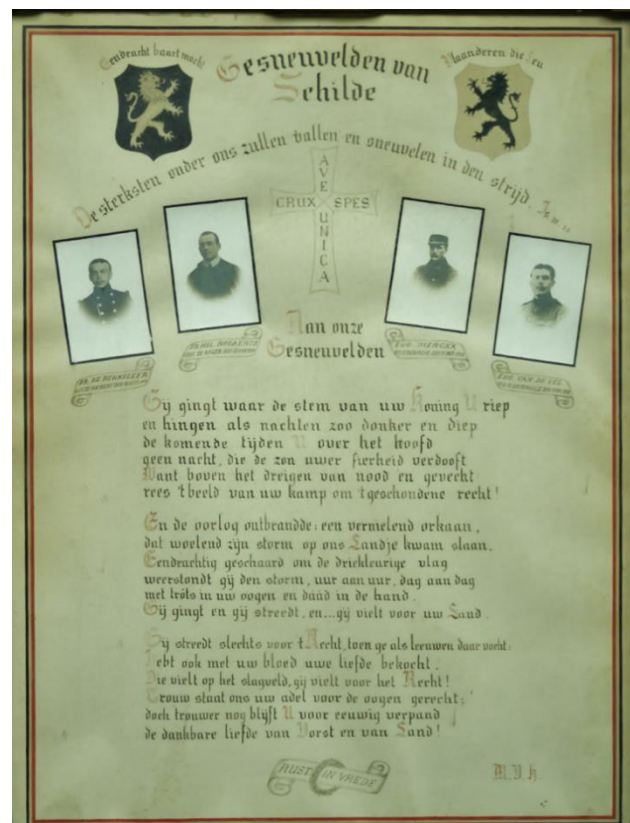 Eendracht baart macht
Gesneuvelden van
Schilde
Vlaanderen die Leu
De sterksten onder ons zullen vallen en sneuvelen in den strijd.
AVE
CRUX SPES
UNICA
Aan onze
Gesneuvelden
Gij gingt waar de stem van uw Koning U riep
en hingen als nachten zoo donker en diep
de komende tijden U over het hoofd
geen nacht, die de zon uwer fierheid verdooft
Want boven het dreigen van nood en gevecht
rees 't beeld van uw kamp om 't geschondene recht!
En de oorlog ontbrandde: een vernielend orkaan,
dat woelend zijn storm op ons Landje kwam slaan.
Eendrachtig geschaard om de driekleurige vlag
weerstondt gij den storm, uur aan uur, dag aan dag
met trots in uw oogen en daad in de hand.
Gij gingt en gij streedt, en...gij vielt voor uw Land.
Gij streedt slechts voor 't Recht, toen ge als leeuwen daar vocht:
Hebt ook met uw bloed uwe liefde bekocht.
Die vielt op het slagveld, gij vielt voor het Recht!
Trouw staat ons uw adel voor de oogen gerecht;
doch trouwer nog blijft U voor eeuwig verpand
de dankbare liefde van Vorst en van Land!
RUST IN VREDE
M.V.H.